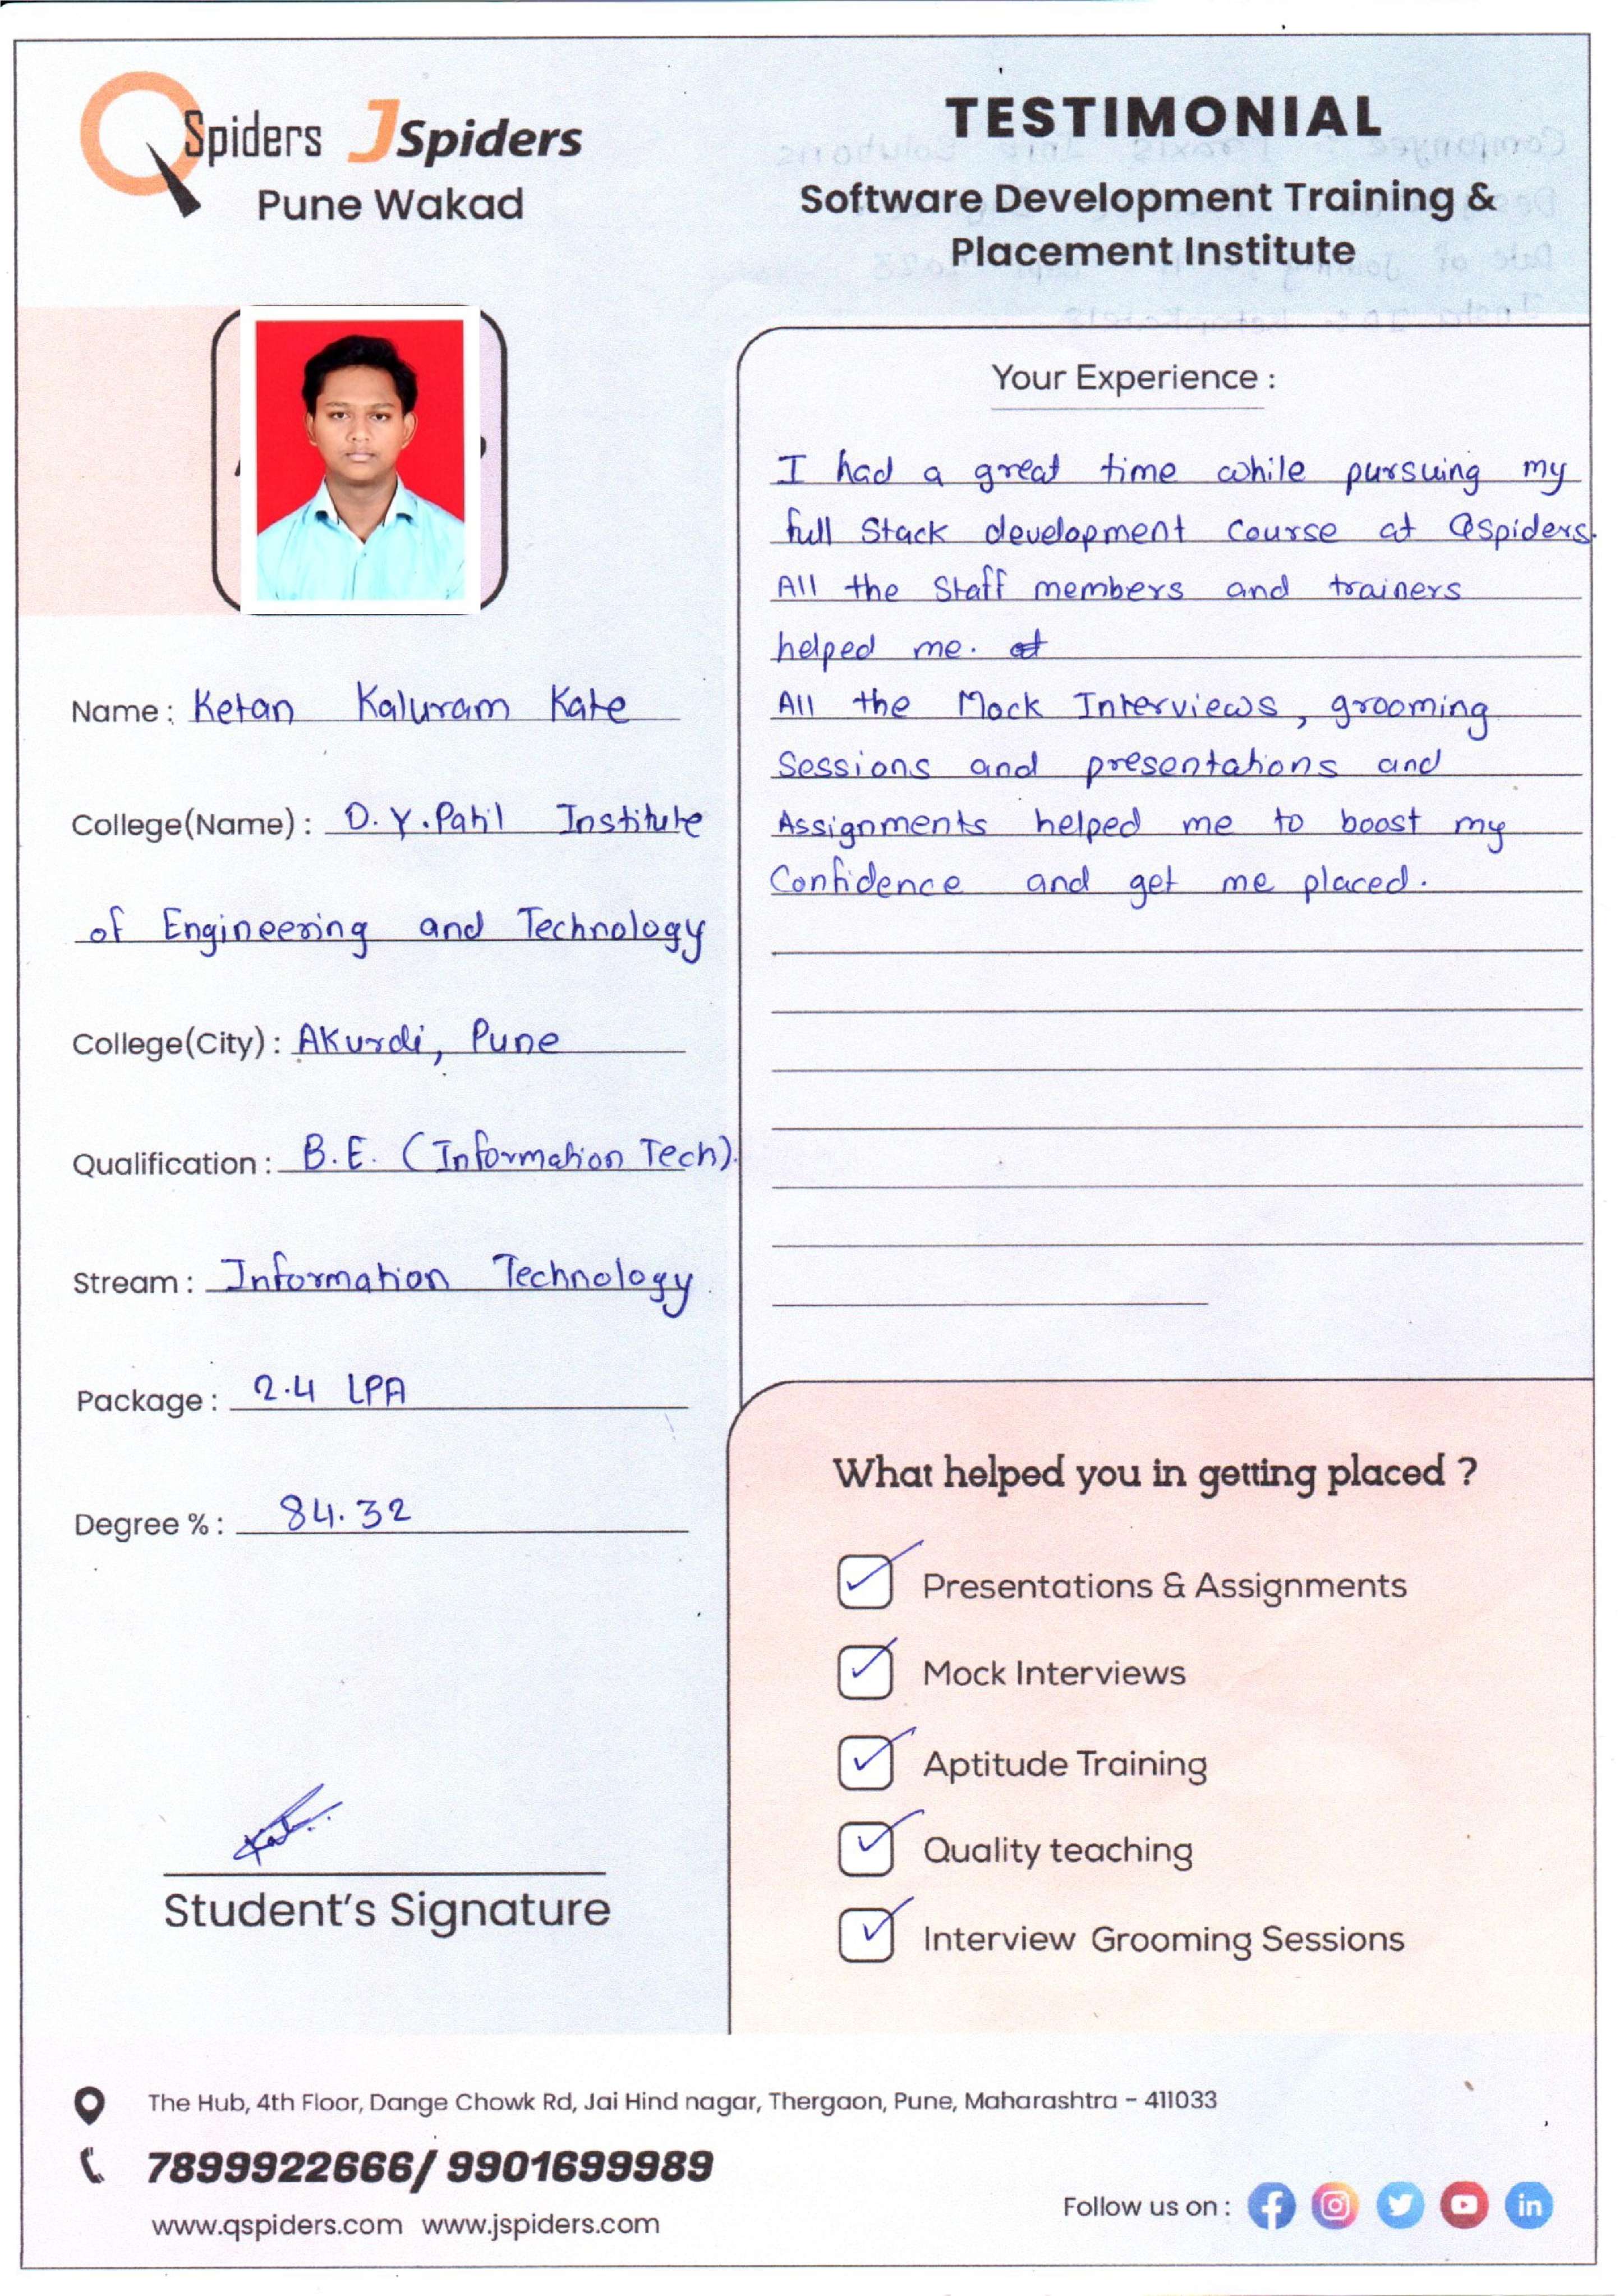 QSpiders JSpiders
Pune Wakad
TESTIMONIAL
Software Development Training &
Placement Institute
Name : Ketan Kaluram Kate
College(Name) : D.Y.Patil Institute
of Engineering and Technology
College(City) : Akurdi, Pune
Qualification : B.E. (Information Tech).
Stream : Information Technology
Package : 2.4 LPA
Degree % : 84.32
Student's Signature
Your Experience :
I had a great time while pursuing my
full Stack development Course at Qspiders.
All the Staff members and trainers
helped me.
All the Mock Interviews, grooming
Sessions and presentations and
Assignments helped me to boost my
Confidence and get me placed.
What helped you in getting placed ?
Presentations & Assignments
Mock Interviews
Aptitude Training
Quality teaching
Interview Grooming Sessions
The Hub, 4th Floor, Dange Chowk Rd, Jai Hind nagar, Thergaon, Pune, Maharashtra - 411033
7899922666/ 9901699989
www.qspiders.com www.jspiders.com
Follow us on :